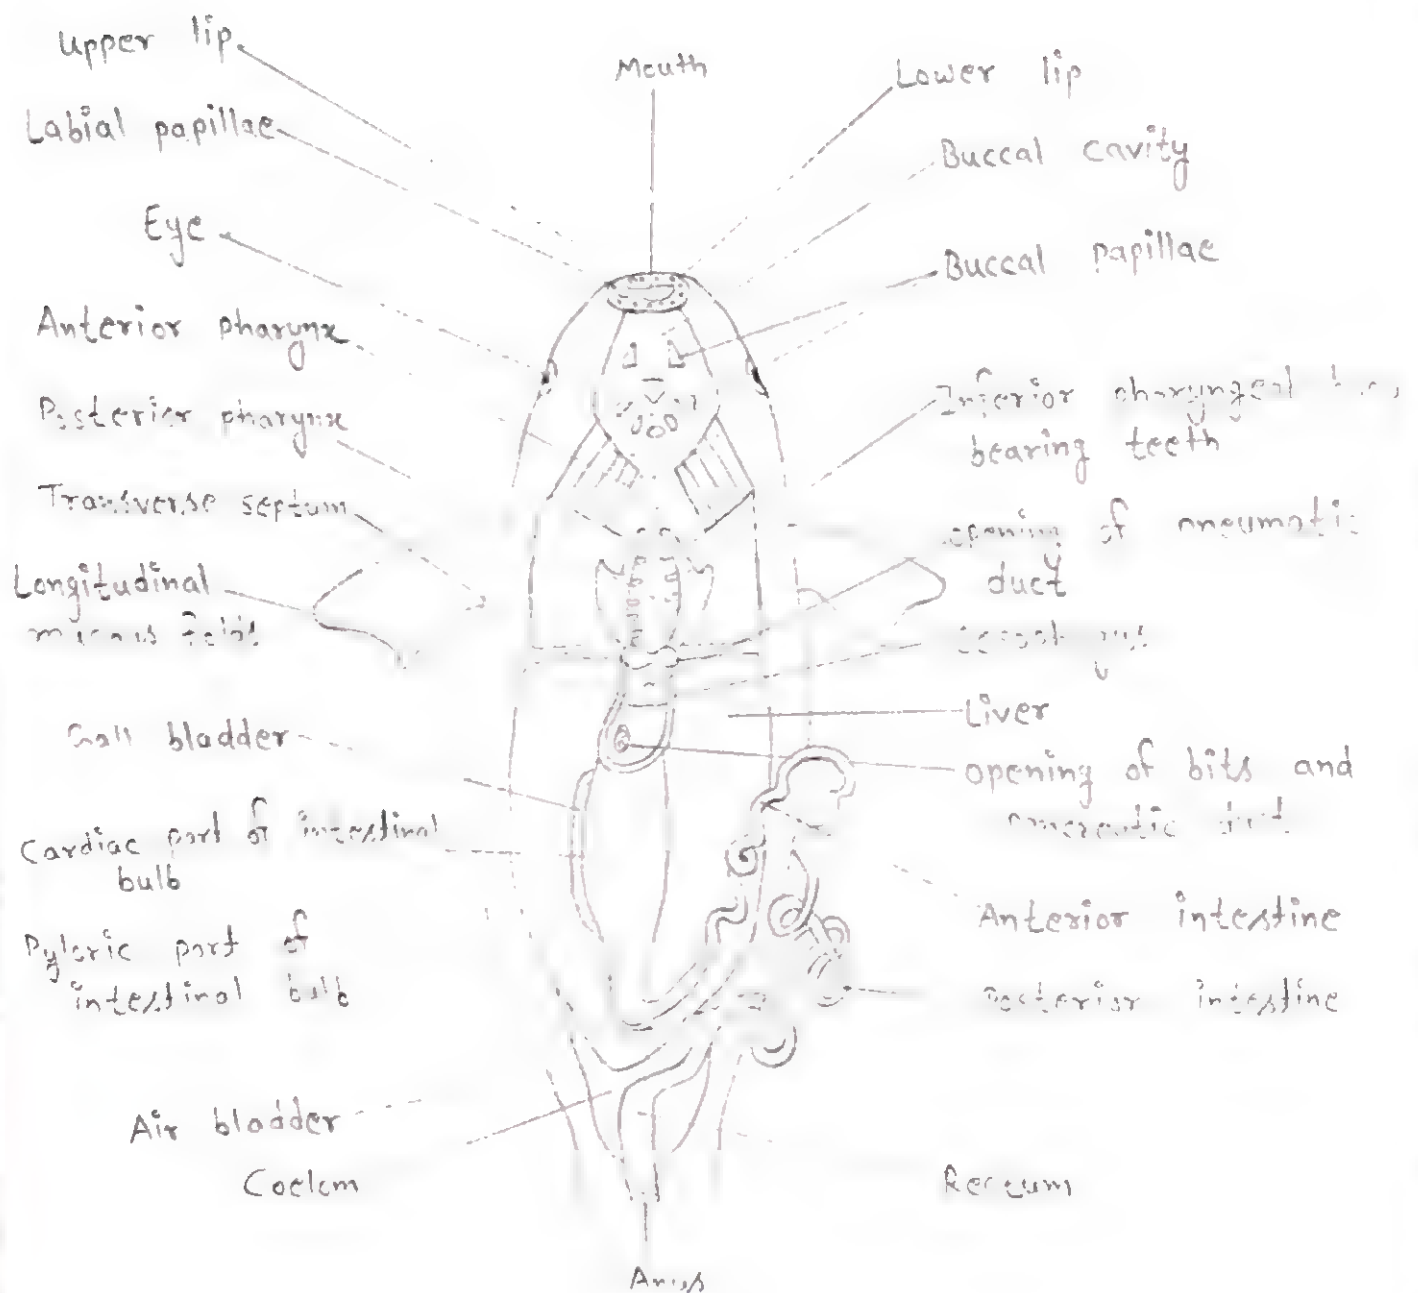 Upper lip
Labial papillae
Eye
Anterior pharynx
Posterior pharynx
Transverse septum
Longitudinal
mucous folds
Gall bladder
Cardiac part of intestinal
bulb
Pyloric part of
intestinal bulb
Air bladder
Coelom
Mouth
Lower lip
Buccal cavity
Buccal papillae
Inferior pharyngeal
bearing teeth
opening of pneumatic
duct
Liver
opening of and
pancreatic duct
Anterior intestine
Posterior intestine
Rectum
Anus